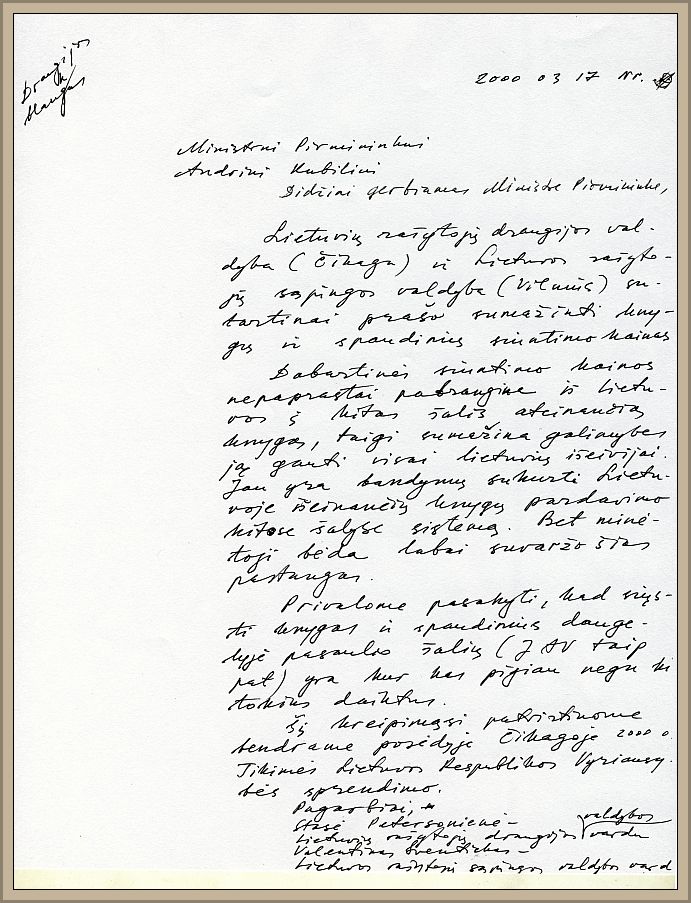 Draugijos
blangas
2000 03 17 Nr.
Ministrui Pirmininkui
Andriui Kubiliui
Didžiai gerbiamas Ministre Pirmininke,
Lietuvių rašytojų draugijos val-
dyba (Čikaga) ir Lietuvos rašyto-
jų sąjungos valdyba (Vilnius) su-
tartinai prašo sumažinti kny-
gų ir spaudinių siuntimo kainas
Dabartinės siuntimo kainos
nepaprastai pabrangina iš Lietu-
vos į kitas šalis ateinančias
knygas, taigi sumažina galimybes
ją gauti visai lietuvių išeivijai.
Jau yra bandymų sukurti Lietu-
voje išeinančių knygų pardavimo
kitose šalyse sistemą. Bet minė-
toji bėda labai suvaržo šias
pastangas.
Privalome pasakyti, kad siųs-
ti knygas ir spaudinius dauge-
lyje pasaulio šalių (JAV taip
pat) yra kur kas pigiau negu ki
tokius daiktus.
Šį kreipimąsi patvirtinome
bendrame posėdyje Čikagoje 2000 0
Tikimės Lietuvos Respublikos Vyriausy-
bės sprendimo.
Pagarbiai,
Stasė Petersonienė –
Lietuvių rašytojų draugijos valdybos vardu
Valentinas Sventickas –
Lietuvos rašytojų sąjungos valdybos vard